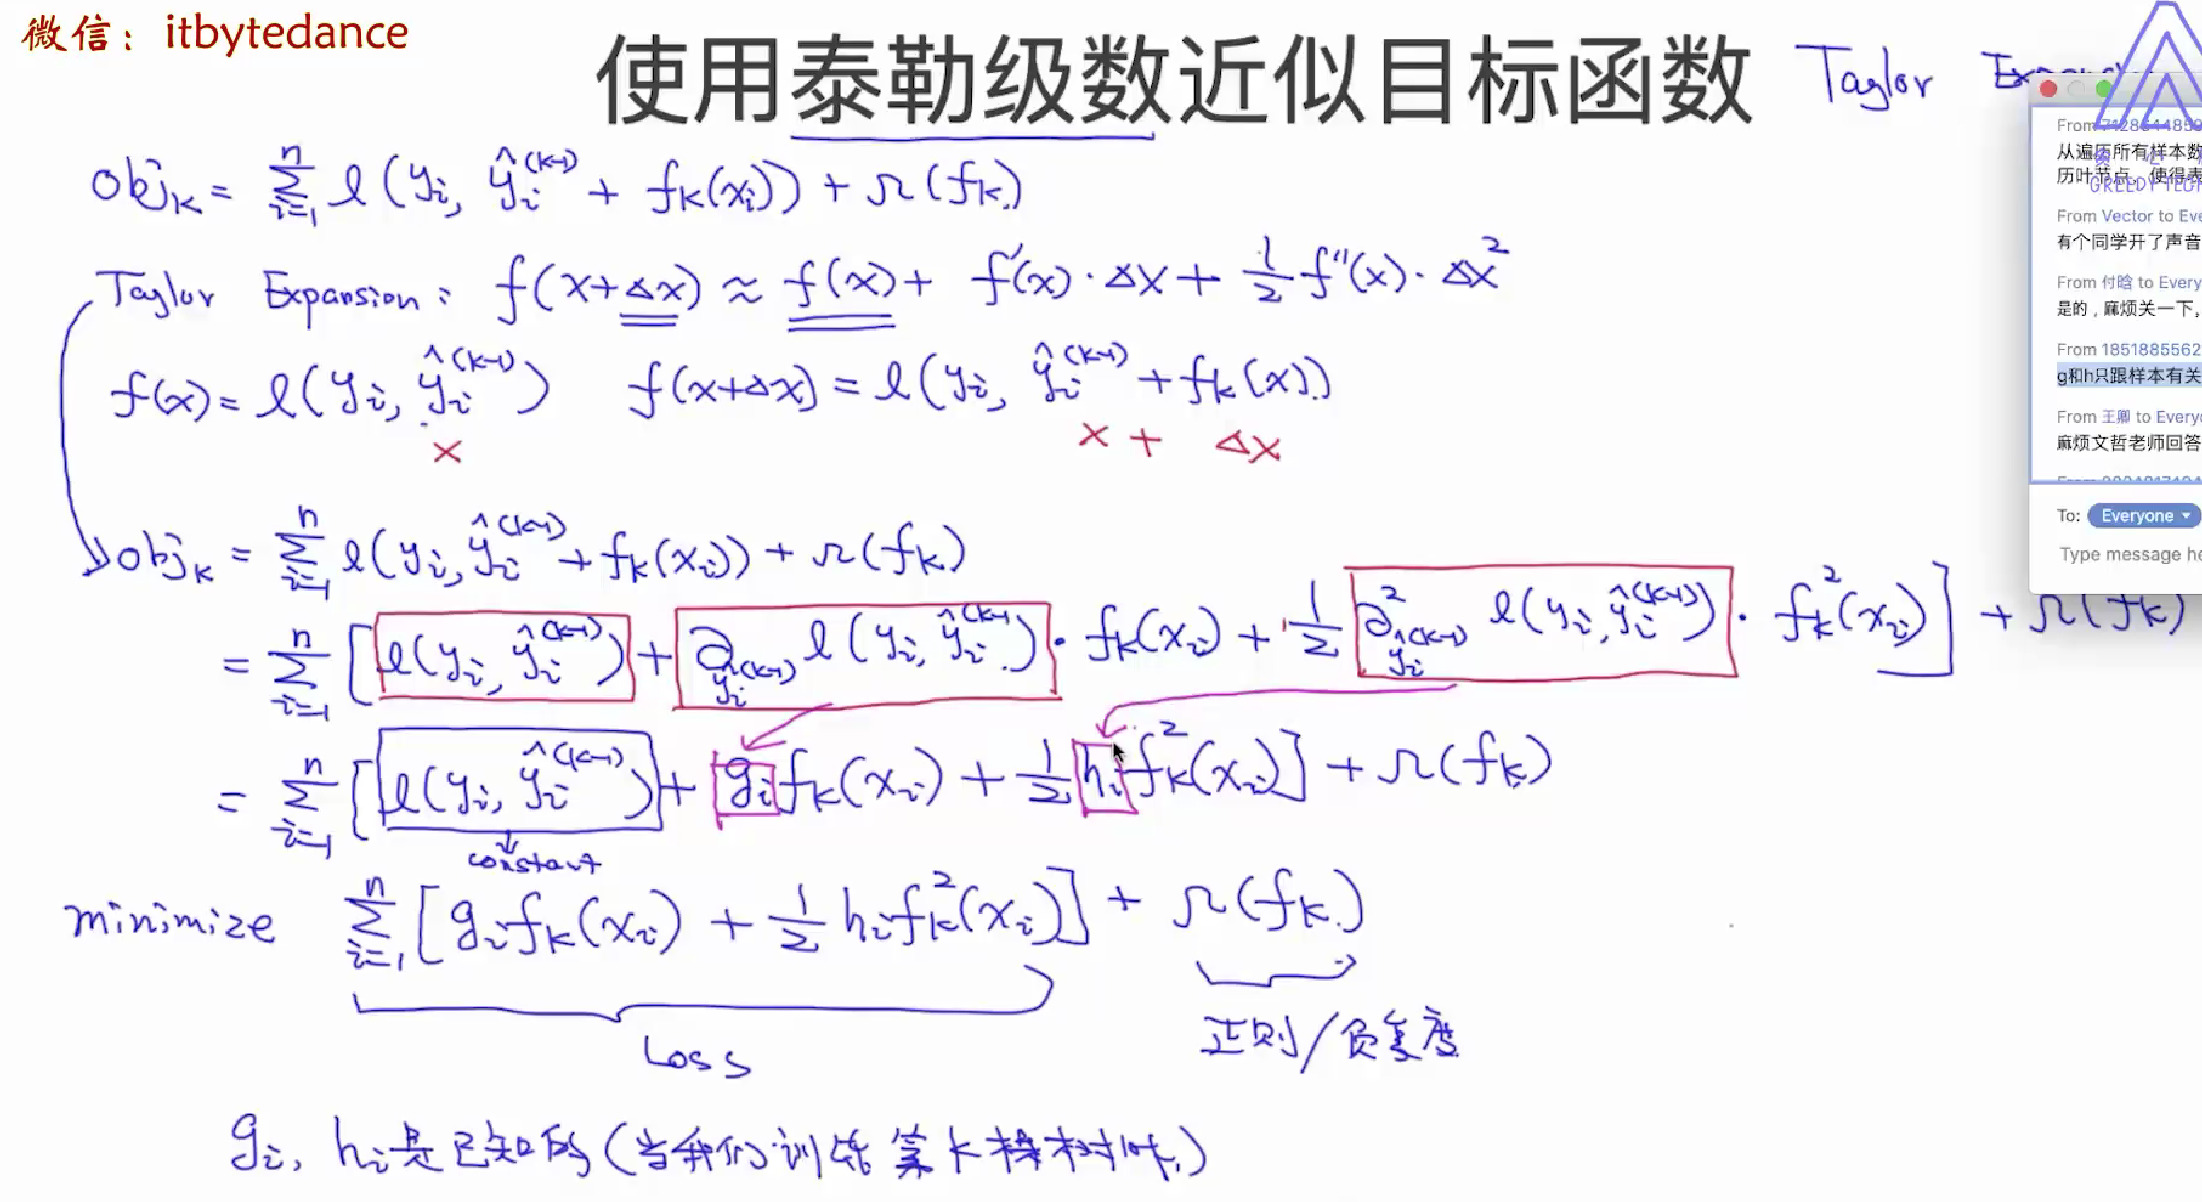 微信：itbytedance
使用泰勒级数近似目标函数 Taylor
obj_k = Σ_{i=1}^{n} l(y_i, ŷ_i^{(k-1)} + f_k(x_i)) + Ω(f_k)
Taylor Expansion: f(x+Δx) ≈ f(x) + f'(x)·Δx + 1/2 f''(x)·Δx²
f(x) = l(y_i, ŷ_i^{(k-1)})    f(x+Δx) = l(y_i, ŷ_i^{(k-1)} + f_k(x))
x    x + Δx
obj_k = Σ_{i=1}^{n} l(y_i, ŷ_i^{(k-1)} + f_k(x_i)) + Ω(f_k)
= Σ_{i=1}^{n} [l(y_i, ŷ_i^{(k-1)}) + ∂_{ŷ_i^{(k-1)}} l(y_i, ŷ_i^{(k-1)})· f_k(x_i) + 1/2 ∂²_{ŷ_i^{(k-1)}} l(y_i, ŷ_i^{(k-1)})· f_k²(x_i)] + Ω(f_k)
= Σ_{i=1}^{n} [l(y_i, ŷ_i^{(k-1)}) + g_i f_k(x_i) + 1/2 h_i f_k²(x_i)] + Ω(f_k)
constant
minimize Σ_{i=1}^{n} [g_i f_k(x_i) + 1/2 h_i f_k²(x_i)] + Ω(f_k)
Loss    正则/负责度
g_i, h_i是已知的(当我们训练第k棵树时,)
From
从遍历所有样本数
历叶节点，使得
GREEDY TECH
From Vector to Eve
有个同学开了声音
From 付晗 to Every
是的，麻烦关一下。
From 1851885562
g和h只跟样本有关
From 王卿 to Everyo
麻烦文哲老师回答
To: Everyone
Type message he